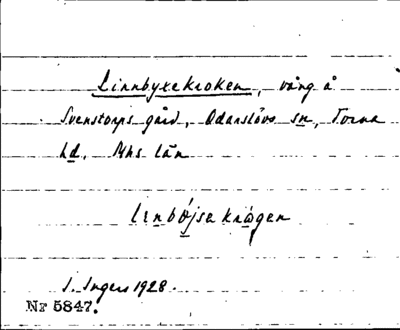 Linnbyxekroken, vång å
Svenstorps gård, Odarslövs sn, Torna
hd, Mhs län
linbójsakrógen
I. Ingers 1928.
Nr 5847.